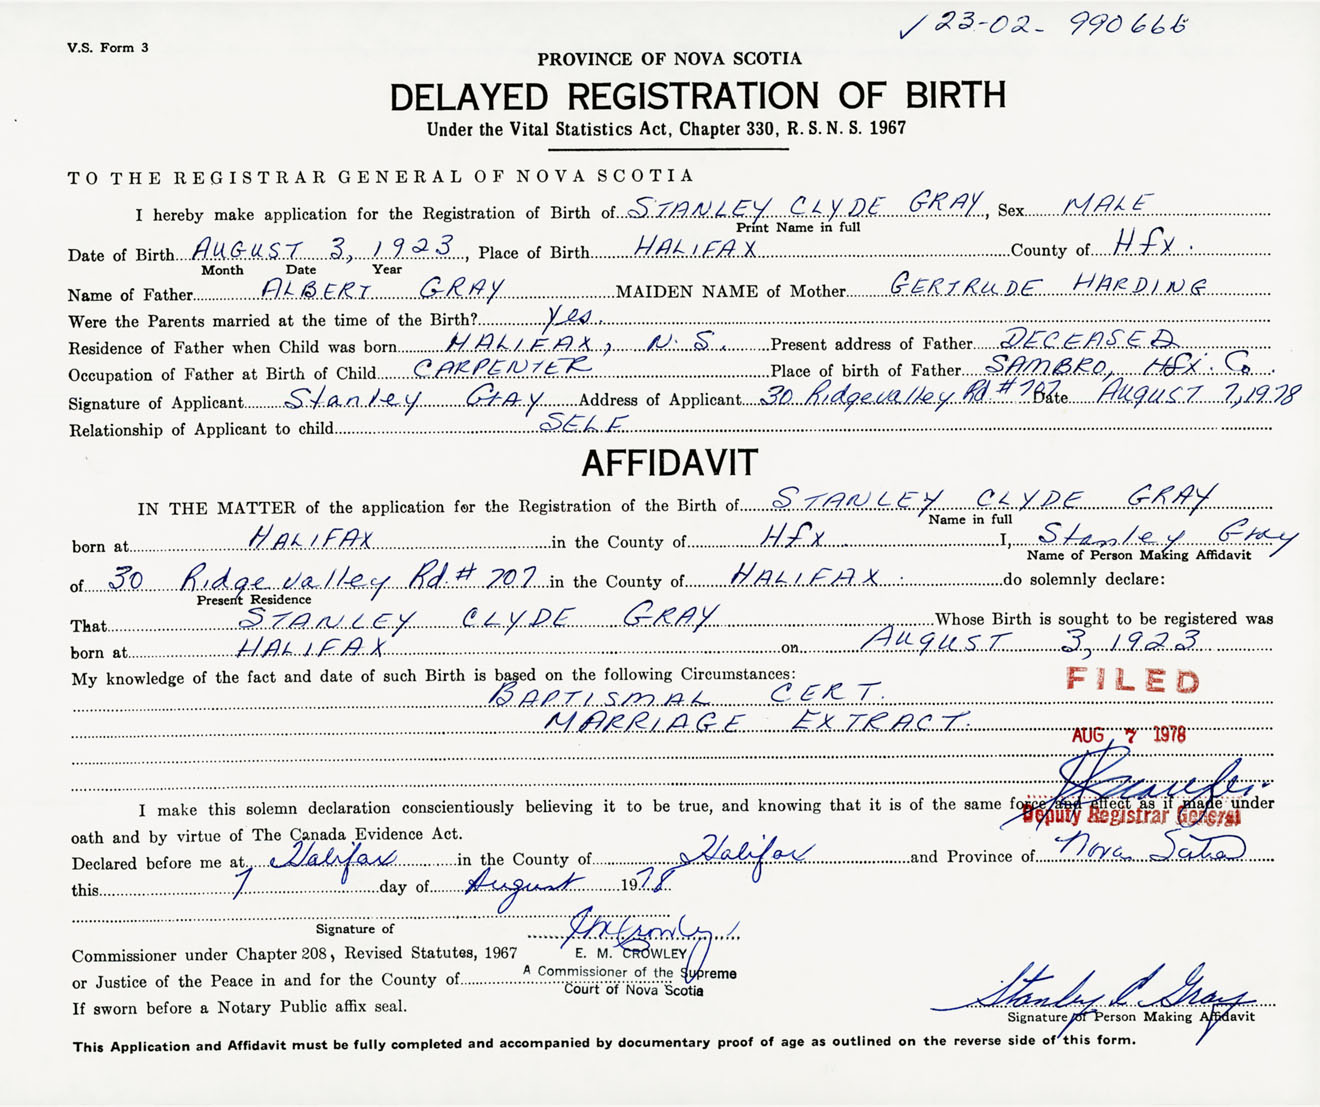 ✓ 23-02- 990666
V.S. Form 3
PROVINCE OF NOVA SCOTIA
DELAYED REGISTRATION OF BIRTH
Under the Vital Statistics Act, Chapter 330, R. S. N. S. 1967
TO THE REGISTRAR GENERAL OF NOVA SCOTIA
I hereby make application for the Registration of Birth of STANLEY CLYDE GRAY, Sex MALE
Print Name in full
Date of Birth AUGUST 3, 1923, Place of Birth HALIFAX County of Hfx.
Month Date Year
Name of Father ALBERT GRAY MAIDEN NAME of Mother GERTRUDE HARDING
Were the Parents married at the time of the Birth? Yes.
Residence of Father when Child was born HALIFAX, N. S. Present address of Father DECEASED
Occupation of Father at Birth of Child CARPENTER Place of birth of Father SAMBRO, Hfx. Co.
Signature of Applicant Stanley Gray Address of Applicant 30 Ridgevalley Rd #707 Date AUGUST 7, 1978
Relationship of Applicant to child SELF
AFFIDAVIT
IN THE MATTER of the application for the Registration of the Birth of STANLEY CLYDE GRAY
Name in full
born at HALIFAX in the County of Hfx. I, Stanley Gray
Name of Person Making Affidavit
of 30 Ridgevalley Rd. # 707 in the County of HALIFAX. do solemnly declare:
Present Residence
That STANLEY CLYDE GRAY Whose Birth is sought to be registered was
born at HALIFAX on AUGUST 3, 1923
My knowledge of the fact and date of such Birth is based on the following Circumstances:
FILED
BAPTISMAL CERT.
MARRIAGE EXTRACT.
AUG 7 1978
I make this solemn declaration conscientiously believing it to be true, and knowing that it is of the same force and effect as if made under
Deputy Registrar General
oath and by virtue of The Canada Evidence Act.
Declared before me at Halifax in the County of Halifax and Province of Nova Scotia
this 7 day of August 1978
Signature of
EM Crowley
Commissioner under Chapter 208, Revised Statutes, 1967 E. M. CROWLEY
or Justice of the Peace in and for the County of A Commissioner of the Supreme
Court of Nova Scotia
If sworn before a Notary Public affix seal.
Stanley C Gray
Signature of Person Making Affidavit
This Application and Affidavit must be fully completed and accompanied by documentary proof of age as outlined on the reverse side of this form.